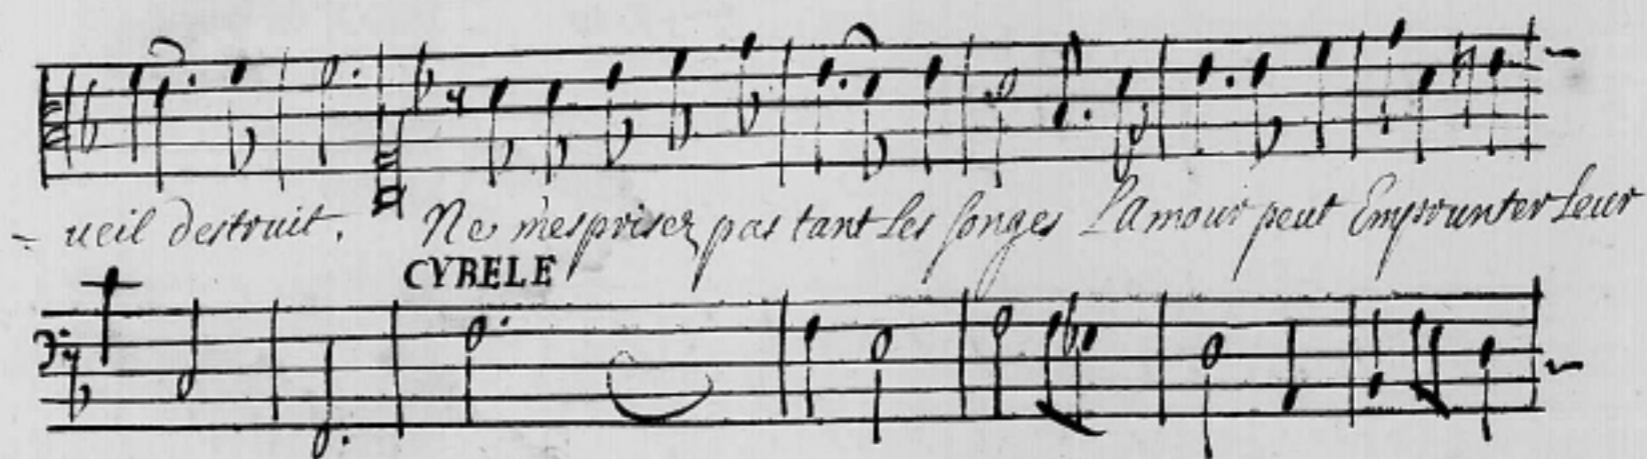 - ueil destruit. Ne mesprisez pas tant les songes L'amour peut Emprunter leur
CYBELE